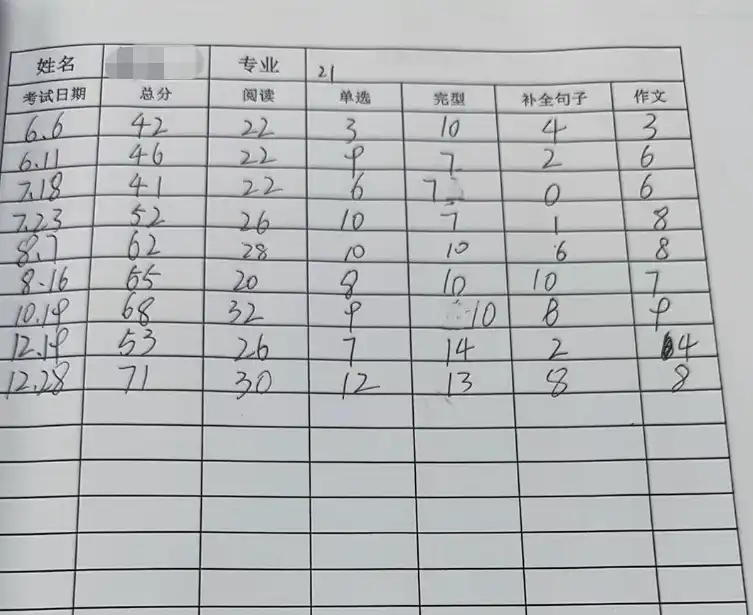 姓名 专业 21
考试日期 总分 阅读 单选 完型 补全句子 作文
6.6 42 22 3 10 4 3
6.11 46 22 9 7 2 6
7.18 41 22 6 7 0 6
7.23 52 26 10 7 1 8
8.7 62 28 10 10 6 8
8.16 55 20 8 10 10 7
10.19 68 32 9 10 8 9
12.19 53 26 7 14 2 4
12.28 71 30 12 13 8 8